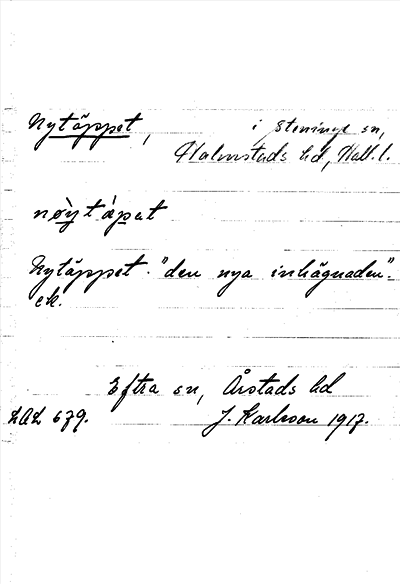 Nytäppet, i Steninge sn,
Halmstads hd, Hall. l.
nøytapat
Nytäppet. "den nya inhägnaden".
ek.
Eftra sn, Årstads hd
LAL 679. J. Karlsson 1917.